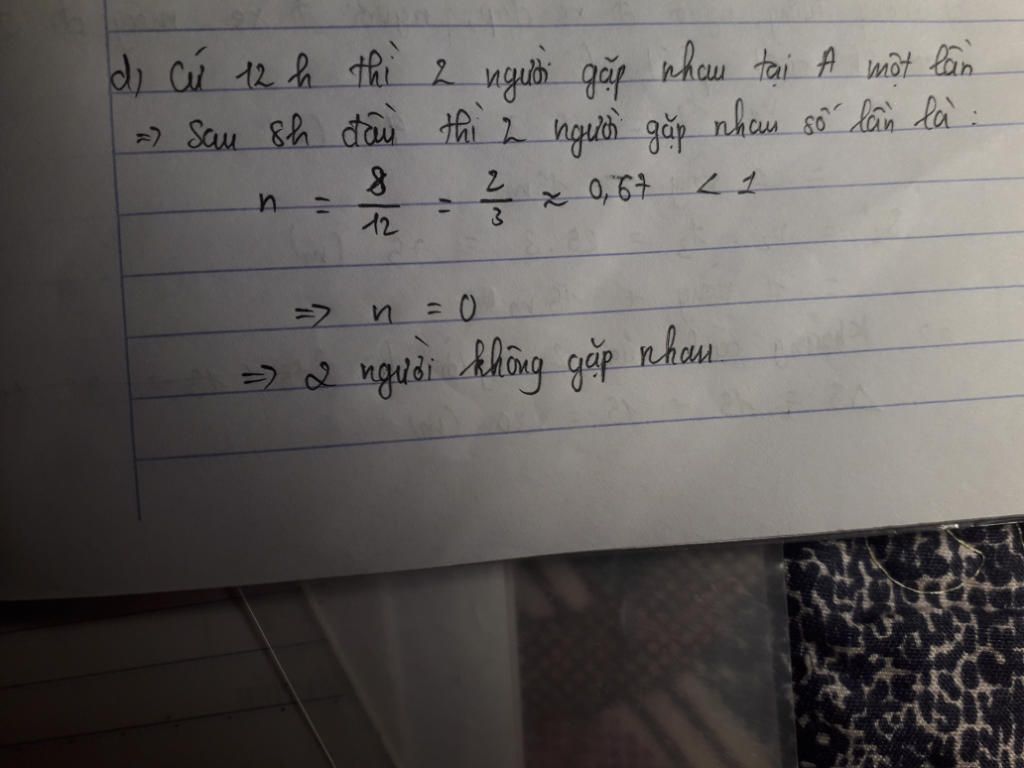 d) Cứ 12 h thì 2 người gặp nhau tại A một lần
=> Sau 8h đầu thì 2 người gặp nhau số lần là:
n = 8/12 = 2/3 ≈ 0,67 < 1
=> n = 0
=> 2 người không gặp nhau